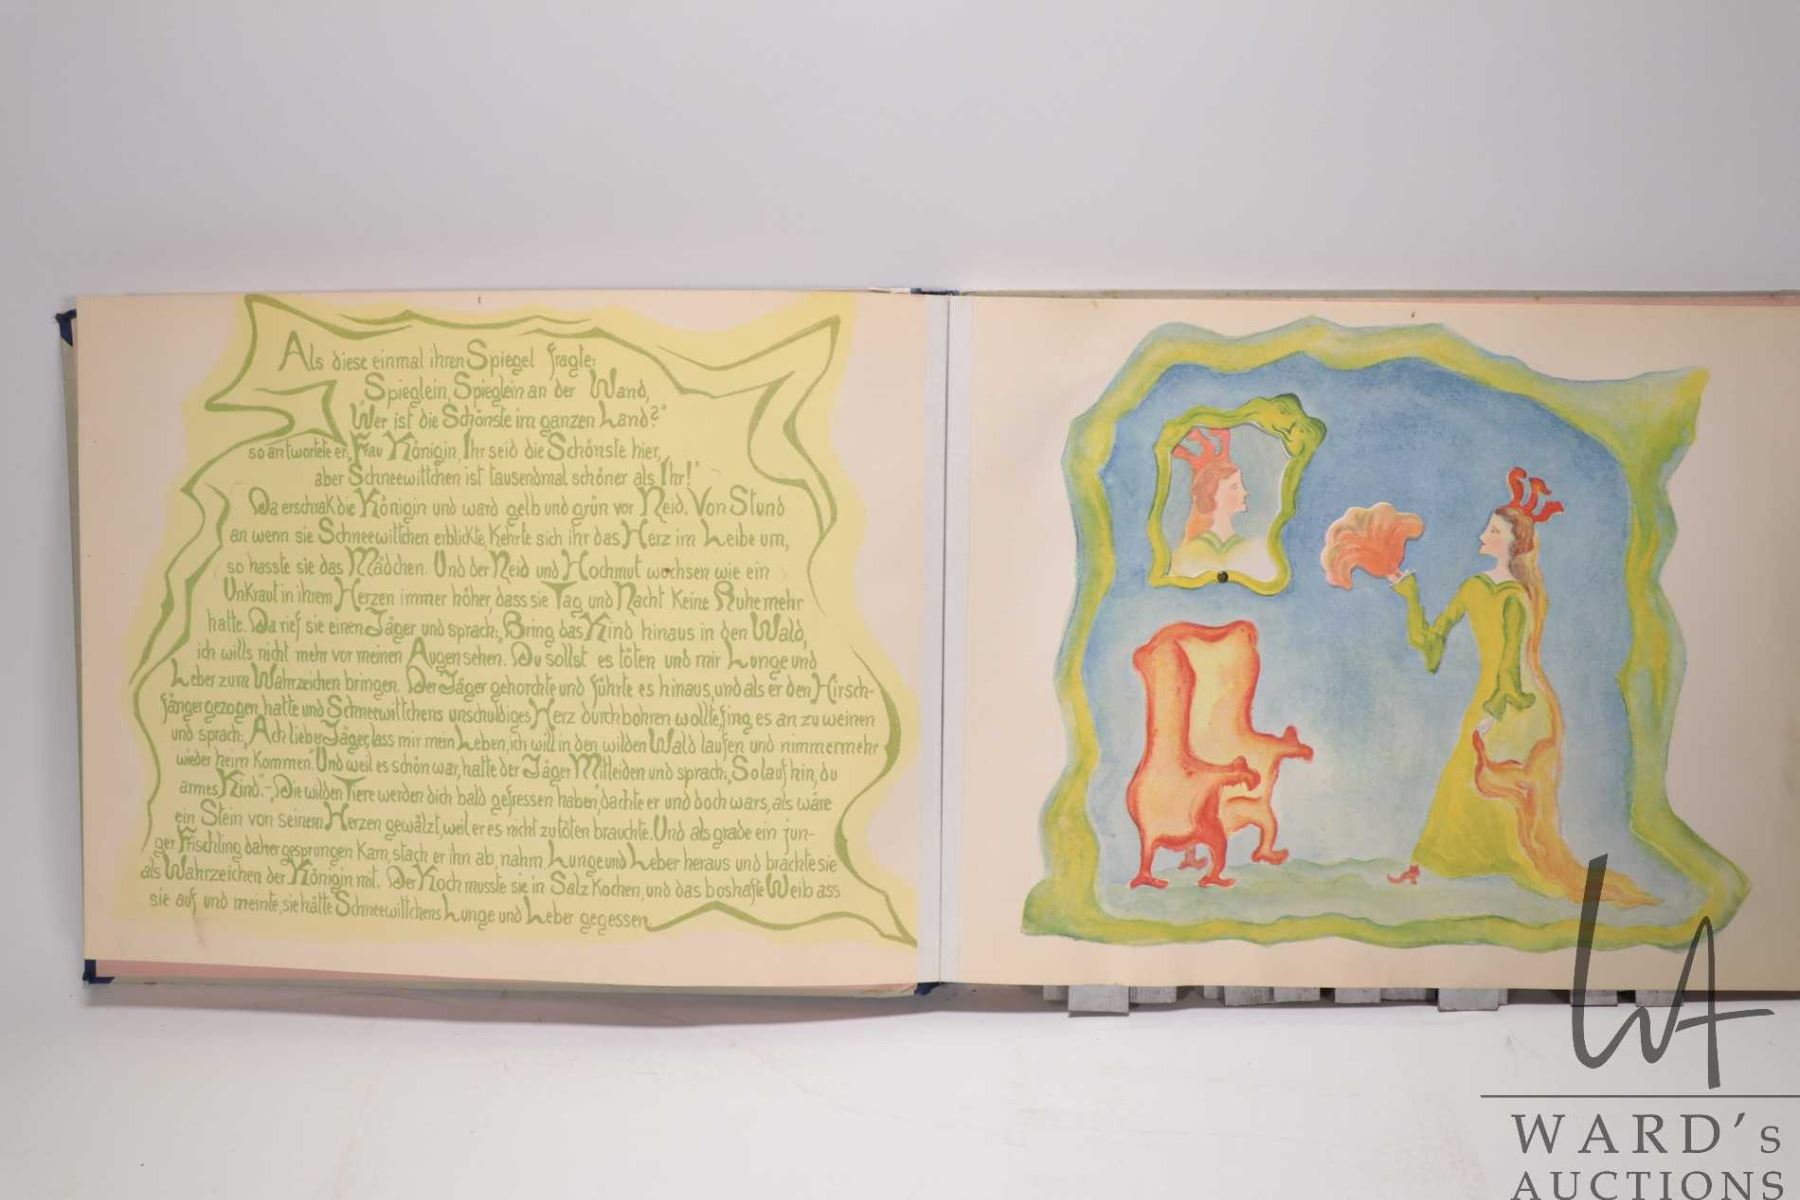 Als diese einmal ihren Spiegel fragte:
"Spieglein, Spieglein an der Wand,
Wer ist die Schönste im ganzen Land?"
so antwortete er: "Frau Königin, Ihr seid die Schönste hier,
aber Schneewittchen ist tausendmal schöner als Ihr!"
Da erschrak die Königin und ward gelb und grün vor Neid. Von Stund
an wenn sie Schneewittchen erblickte, Kehrte sich ihr das Herz im Leibe um,
so hasste sie das Mädchen. Und der Neid und Hochmut wochsen wie ein
Unkraut in ihrem Herzen immer höher, dass sie Tag und Nacht Keine Ruhe mehr
hatte. Da rief sie einen Jäger und sprach: "Bring das Kind hinaus in den Wald,
ich wills nicht mehr vor meinen Augen sehen. Du sollst es töten und mir Lunge und
Leber zum Wahrzeichen bringen. Der Jäger gehorchte und führte es hinaus, und als er den Hirsch-
fänger gezogen hatte und Schneewittchens unschuldiges Herz durchbohren wollte, fing es an zu weinen
und sprach: "Ach lieber Jäger, lass mir mein Leben, ich will in den wilden Wald laufen und nimmermehr
wieder heim Kommen." Und weil es schön war, hatte der Jäger Mitleiden und sprach: "So lauf hin, du
armes Kind." - "Die wilden Tiere werden dich bald gefressen haben", dachte er und doch wars, als wäre
ein Stein von seinem Herzen gewälzt, weil er es nicht zu töten brauchte. Und als grade ein jun-
ger Frischling daher gesprongen Kam, stach er ihn ab, nahm Lunge und Leber heraus und brachte sie
als Wahrzeichen der Königin mit. Der Koch musste sie in Salz Kochen, und das boshafte Weib ass
sie auf und meinte, sie hätte Schneewittchens Lunge und Leber gegessen.
WA
WARD's
AUCTIONS